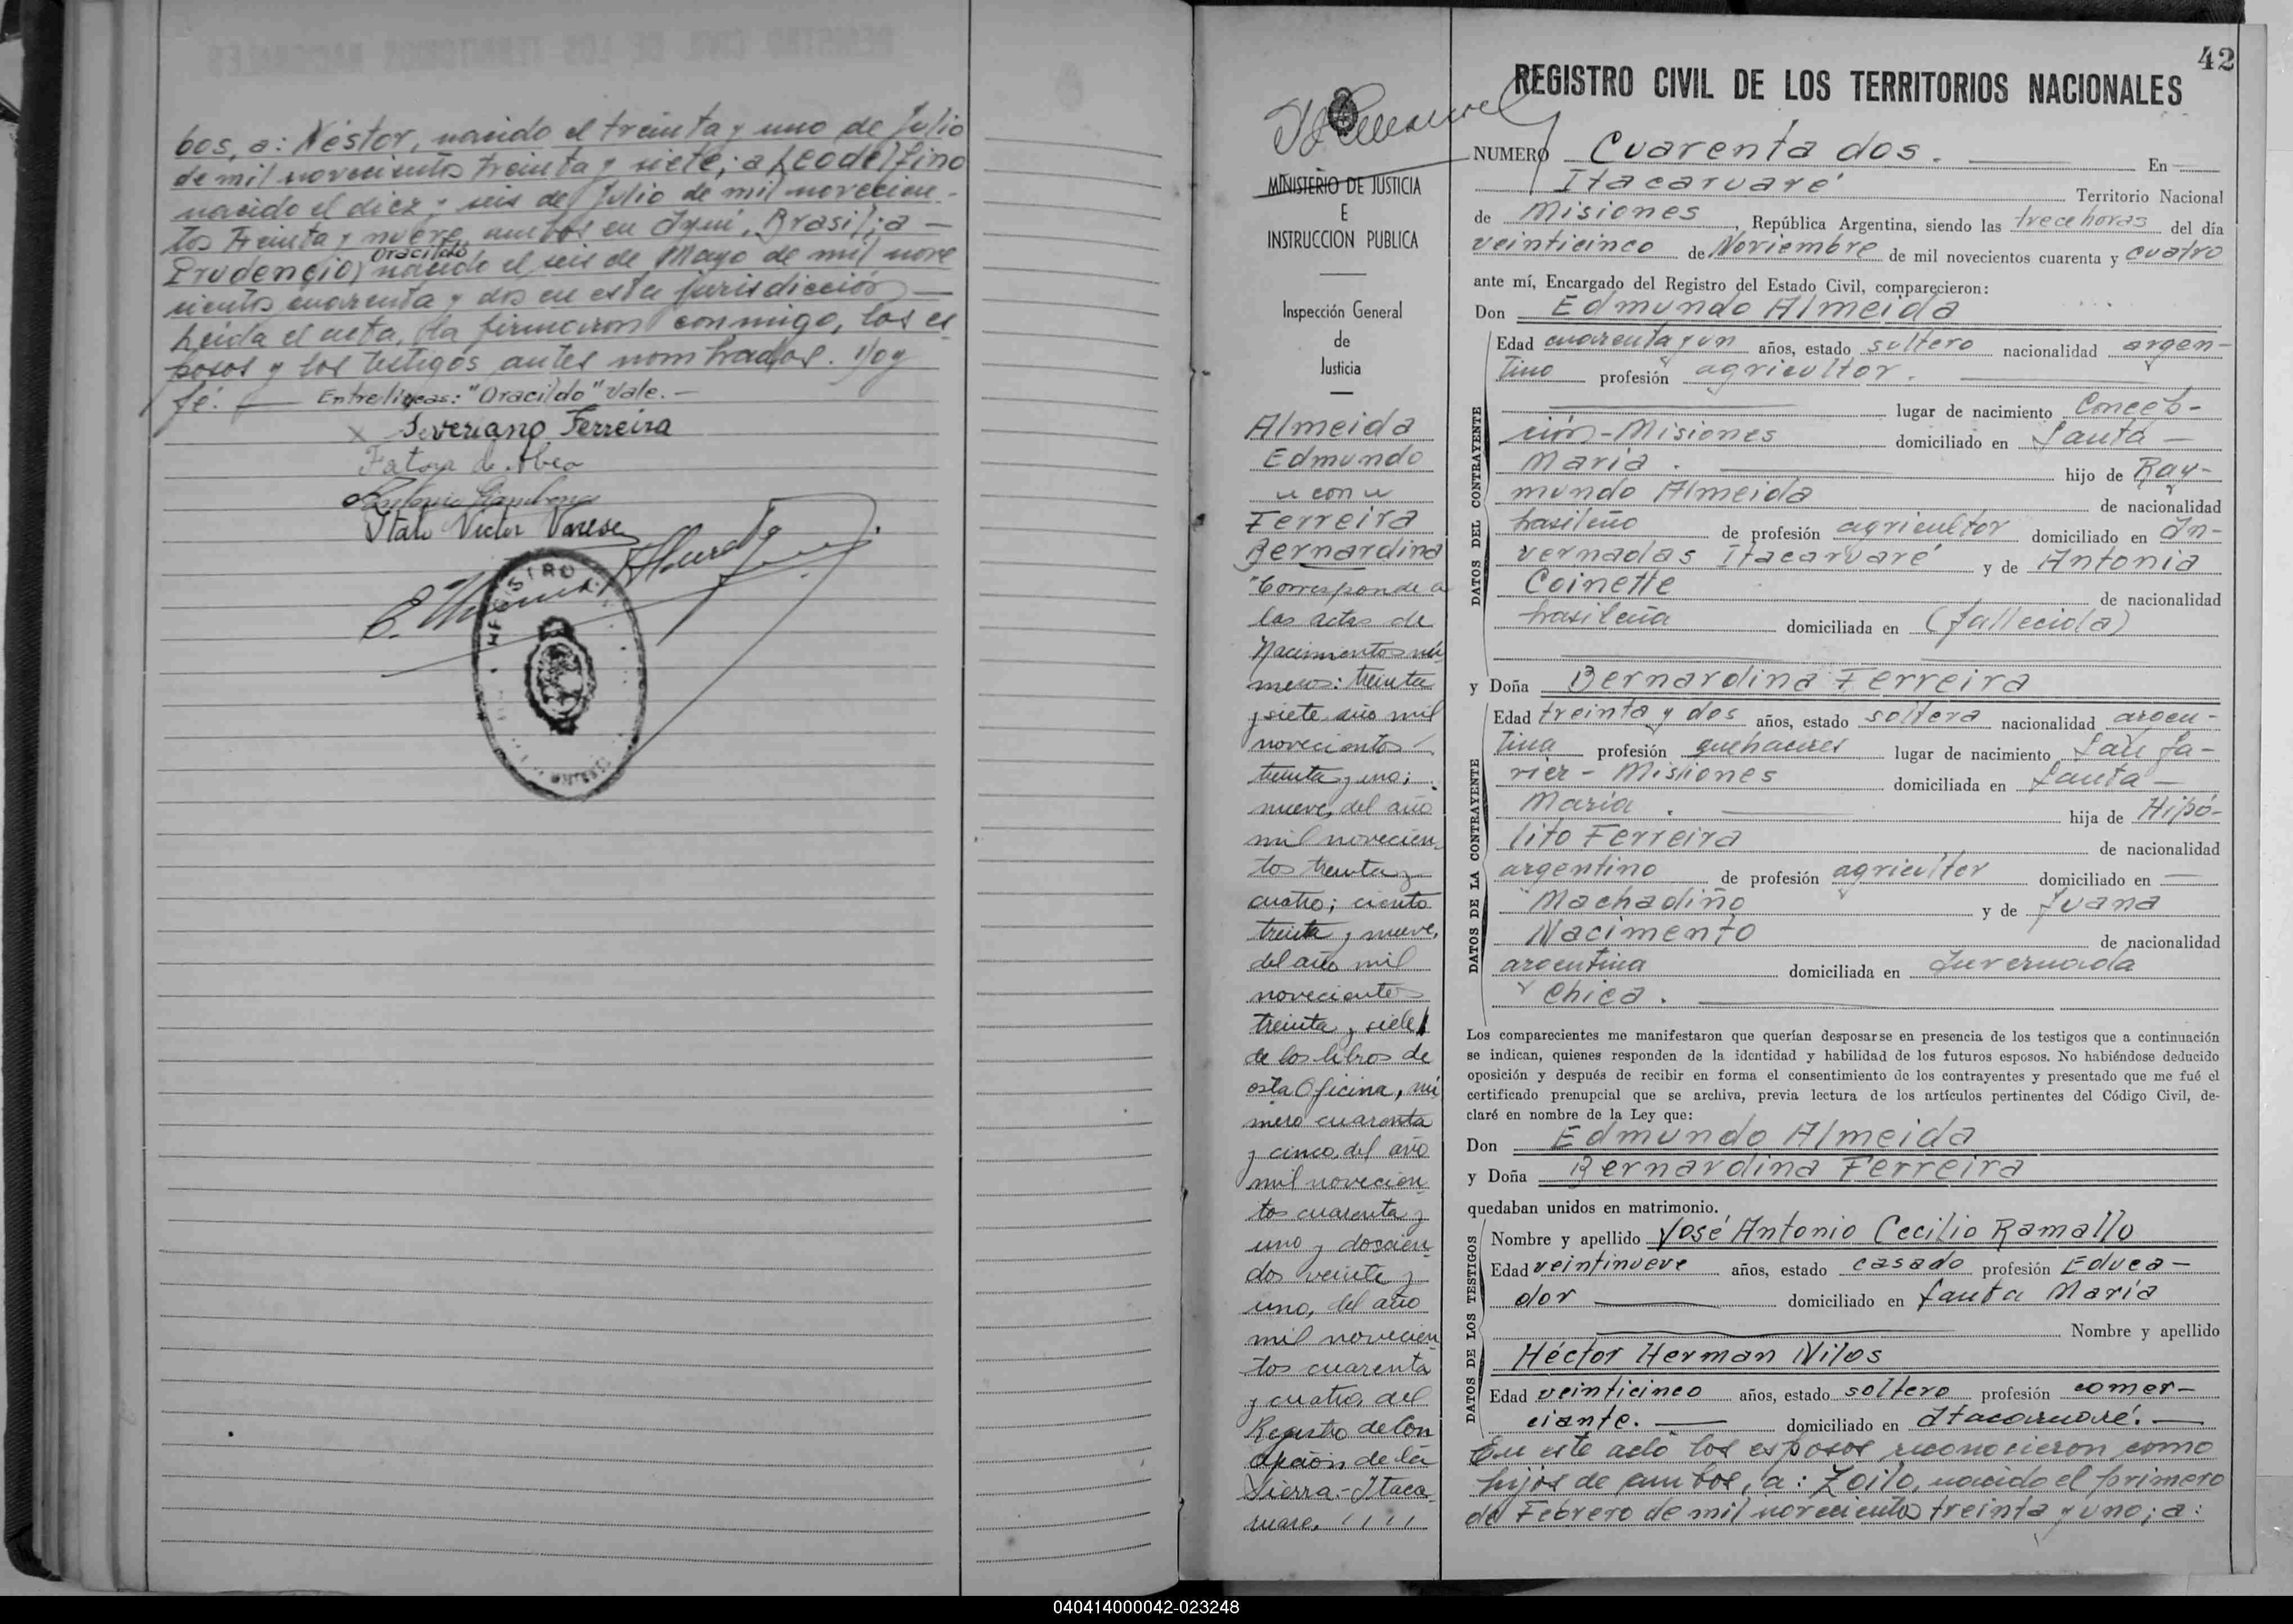 bos, a: Néstor, nacido el treinta y uno de Julio
de mil novecientos treinta y siete; a Leodelfino
nacido el diez y seis de Julio de mil novecien-
tos treinta y nueve, ambos en Iyuí, Brasil; a —
Oracildo
Prudencio, nacido el seis de Mayo de mil nove
cientos cuarenta y dos en esta jurisdicción —
Leída el acta, la firmaron conmigo, los es-
posos y los testigos antes nombrados. Doy
fé. — Entrelíneas: "Oracildo" Vale. —
Severiano Ferreira
de
Antonio
Italo Victor Varese
REGISTRO
42
REGISTRO CIVIL DE LOS TERRITORIOS NACIONALES
MINISTERIO DE JUSTICIA
E
INSTRUCCION PUBLICA
Inspección General
de
Justicia
Almeida
Edmundo
" con "
Ferreira
Bernardina
"Corresponde a
las actas de
Nacimientos nú-
meros: treinta
y siete año mil
novecientos
treinta y uno;
nueve, del año
mil novecien-
tos treinta y
cuatro; ciento
treinta y nueve,
del año mil
novecientos
treinta y siete
de los libros de
esta Oficina, nú
mero cuarenta
y cinco, del año
mil novecien
tos cuarenta y
uno y doscien
dos veinte y
uno, del año
mil novecien
tos cuarenta
y cuatro, del
Registro de Con
cepción de la
Sierra.- Itaca-
ruaré.
NUMERO Cuarenta dos. — En —
Itacaruaré Territorio Nacional
de Misiones, República Argentina, siendo las trece horas del día
veinticinco de Noviembre de mil novecientos cuarenta y cuatro
ante mí, Encargado del Registro del Estado Civil, comparecieron:
Don Edmundo Almeida
DATOS DEL CONTRAYENTE
Edad cuarenta y un años, estado soltero nacionalidad argen-
tino profesión agricultor. —
lugar de nacimiento Concep-
ción-Misiones domiciliado en Santa —
María. — hijo de Ray-
mundo Almeida de nacionalidad
brasileño de profesión agricultor domiciliado en In-
vernadas Itacaruaré y de Antonia
Coinette de nacionalidad
brasileña domiciliada en (fallecida)
y Doña Bernardina Ferreira
DATOS DE LA CONTRAYENTE
Edad treinta y dos años, estado soltera nacionalidad argen-
tina profesión quehaceres lugar de nacimiento San Ja-
vier - Misiones domiciliada en Santa —
María. — hija de Hipó-
lito Ferreira de nacionalidad
argentino de profesión agricultor domiciliado en —
Machadiño y de Juana
Nacimento de nacionalidad
argentina domiciliada en Invernada
Chica. —
Los comparecientes me manifestaron que querían desposarse en presencia de los testigos que a continuación
se indican, quienes responden de la identidad y habilidad de los futuros esposos. No habiéndose deducido
oposición y después de recibir en forma el consentimiento de los contrayentes y presentado que me fué el
certificado prenupcial que se archiva, previa lectura de los artículos pertinentes del Código Civil, de-
claré en nombre de la Ley que:
Don Edmundo Almeida
y Doña Bernardina Ferreira
quedaban unidos en matrimonio.
DATOS DE LOS TESTIGOS
Nombre y apellido José Antonio Cecilio Ramallo
Edad veintinueve años, estado casado profesión Educa-
dor — domiciliado en Santa María
— Nombre y apellido
Héctor Herman Nilos
Edad veinticinco años, estado soltero profesión comer-
ciante. — domiciliado en Itacaruaré. —
En este acto los esposos reconocieron como
hijos de ambos, a: Zoilo, nacido el primero
de Febrero de mil novecientos treinta y uno; a:
040414000042-023248